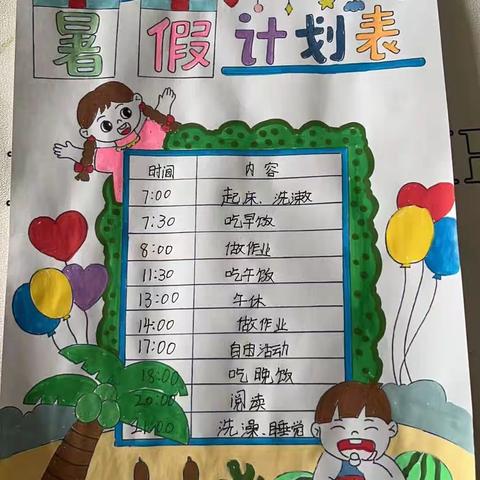 暑假计划表
时间 内容
7:00 起床、洗漱
7:30 吃早饭
8:00 做作业
11:30 吃午饭
13:00 午休
14:00 做作业
17:00 自由活动
18:00 吃晚饭
20:00 阅读
21:00 洗澡、睡觉